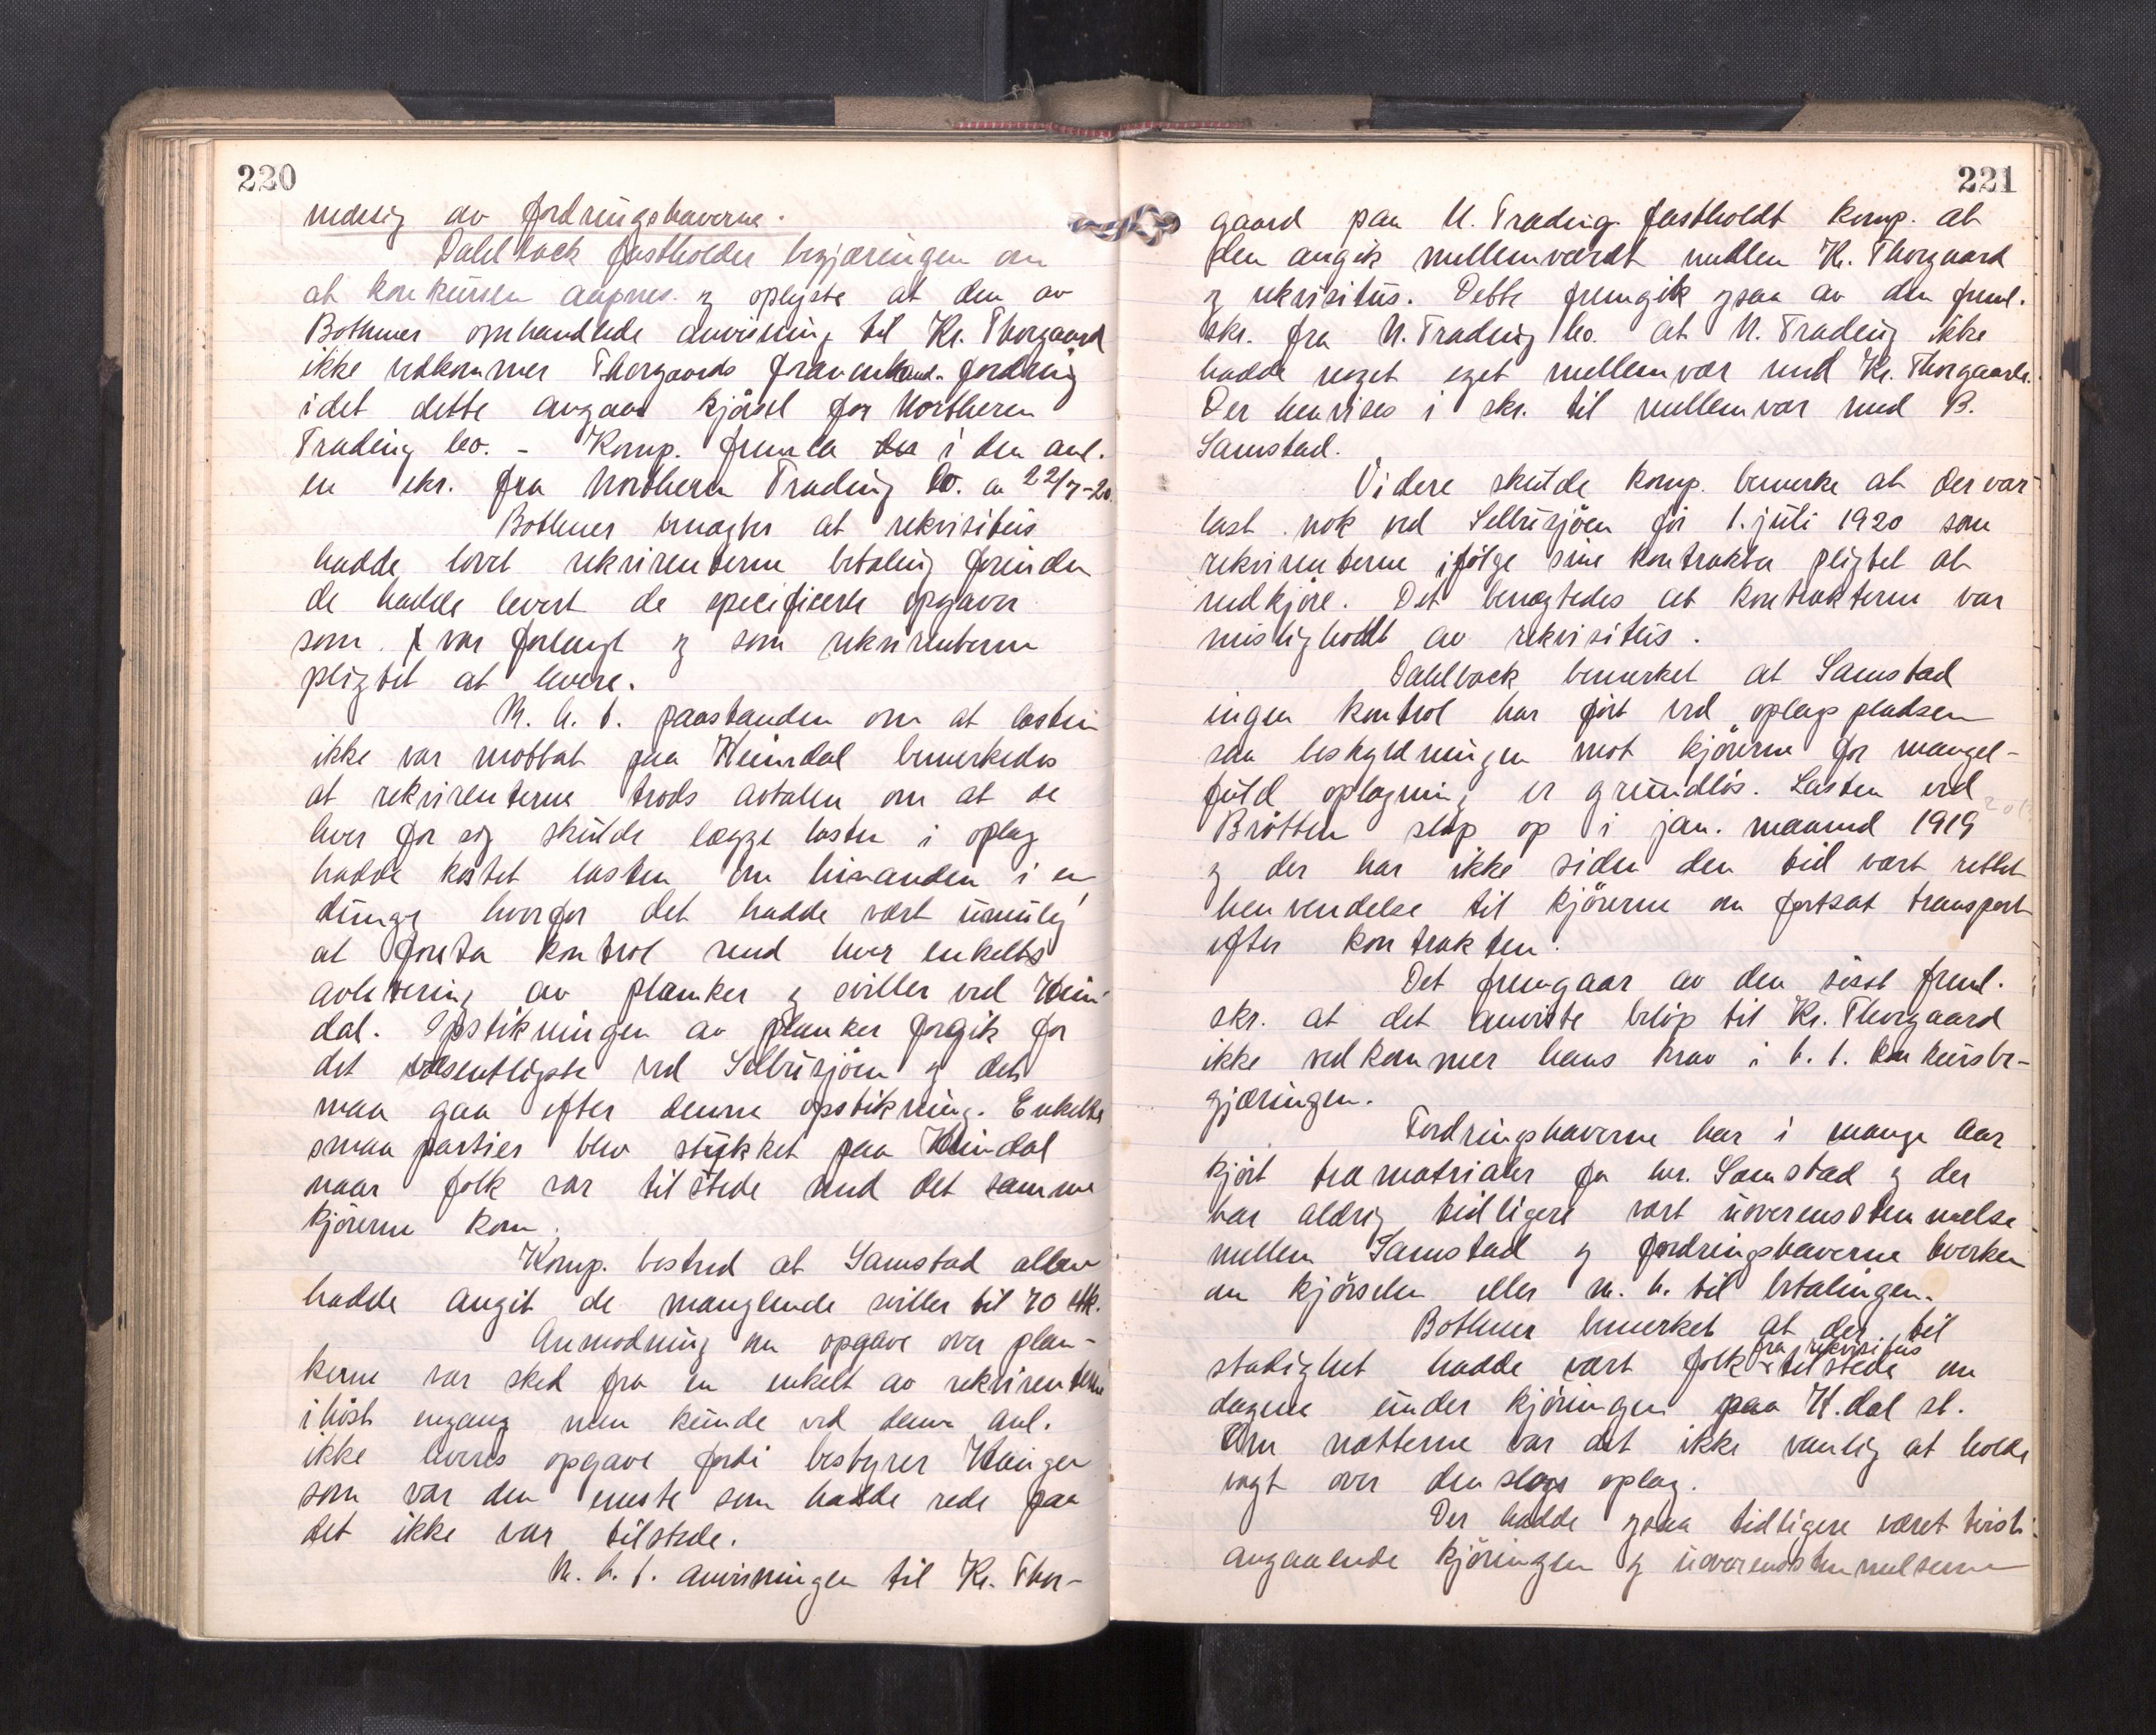 220
nedsig av fordringshaverne.
Dahlback fastholder begjæringen om
at konkursen aapnes. og oplyste at den av
Bothner omhandlede anvisning til Kr. Thorgaard
ikke vedkommer Thorgaards foranenhand. fordring
idet dette angaar kjørsel for Northern
Trading Co. - Komp. fremla i den anl.
en skr. fra Northern Trading Co. av 22/7-20.
Bothner benægter at rekvisitus
hadde lovet rekvirenterne betaling forinden
de hadde levert de specificerte opgaver
som var forlangt og som rekvirenterne
pligtet at levere.
M. h. t. paastanden om at lasten
ikke var mottat paa Heimdal bemerkedes
at rekvirenterne trods avtalen om at de
hver for sig skulde lægge lasten i oplag
hadde kastet lasten om hinanden i en
dunge hvorfor det hadde vært umulig
at foreta kontrol med hver enkelts
avlevering av planker og sviller ved Heim-
dal. Opstikningen av planker foregik for
det væsentligste ved Selbusjøen og det
maa gaa efter denne opstikning. Enkelte
smaa partier blev stykket paa Heimdal
naar folk var tilstede med det samme
kjørerne kom.
Komp. bestred at Samstad
hadde angit de manglende sviller til 70 stk.
Anmodning om opgave over plan-
kerne var sked fra en enkelt av rekvirenterne
i høst engang men kunde ved denne anl.
ikke leveres opgave fordi bestyrer
som var den eneste som hadde rede paa
det ikke var tilstede.
M. h. t. anvisningen til Kr. Thor-
221
gaard paa N. Trading fastholdt komp. at
den angik mellemværdt mellem Kr. Thorgaard
og rekvisitus. Dette fremgik ogsaa av den freml.
skr. fra N. Trading Co. at N. Trading ikke
hadde noget eget mellemvær med Kr. Thorgaard.
Der henvises i skr. til mellemvær med B.
Samstad.
Videre skulde komp. bemerke at der var
last nok ved Selbusjøen før 1. juli 1920 som
rekvirenterne ifølge sine kontrakter pligtet at
nedkjøre. Det benægtedes at kontrakterne var
misligholdt av rekvisitus.
Dahlback bemerket at Samstad
ingen kontrol har ført ved oplagspladsen
saa beskyldningen mot kjørerne for mangel-
fuld oplagning er grundløs. Lasten ved
Brøtten slap op i jan. maaned 1919
og der har ikke siden den tid vært rettet
henvendelse til kjørerne om fortsat transport
efter kontrakten.
Det fremgaar av den sisst freml.
skr. at det anviste beløp til Kr. Thorgaard
ikke vedkommer hans krav i h. t. konkursbe-
gjæringen.
Fordringshaverne har i mange aar
kjørt træmatrialer for hr. Samstad og der
har aldrig tidligere vært uoverensstemmelse
mellem Samstad og fordringshaverne hverken
om kjørselen eller m. h. til betalingen.
Bothner bemerket at der til
stadighet hadde vært folk fra rekvisitus tilstede om
dagene under kjøringen paa H.dal st.
Om nætterne var det ikke vanlig at holde
vagt over denslags oplag.
Der hadde ogsaa tidligere været tvist
angaaende kjøringen og uoverensstemmelserne